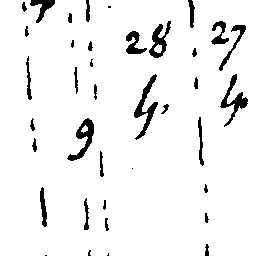 28 27
4. 4.
9